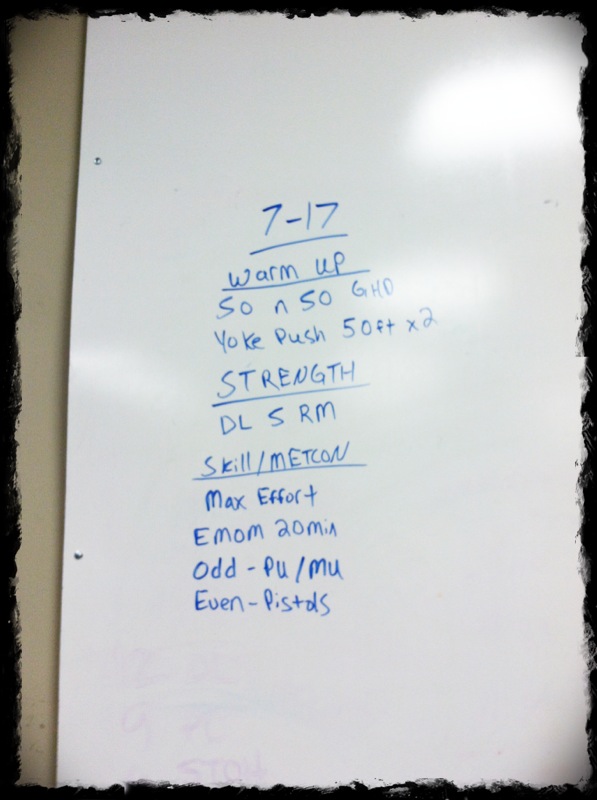 7-17
Warm up
50 n 50 GHD
Yoke Push 50ft x2
STRENGTH
DL 5 RM
Skill/METCON
Max Effort
Emom 20min
Odd - Pu/Mu
Even - Pistols